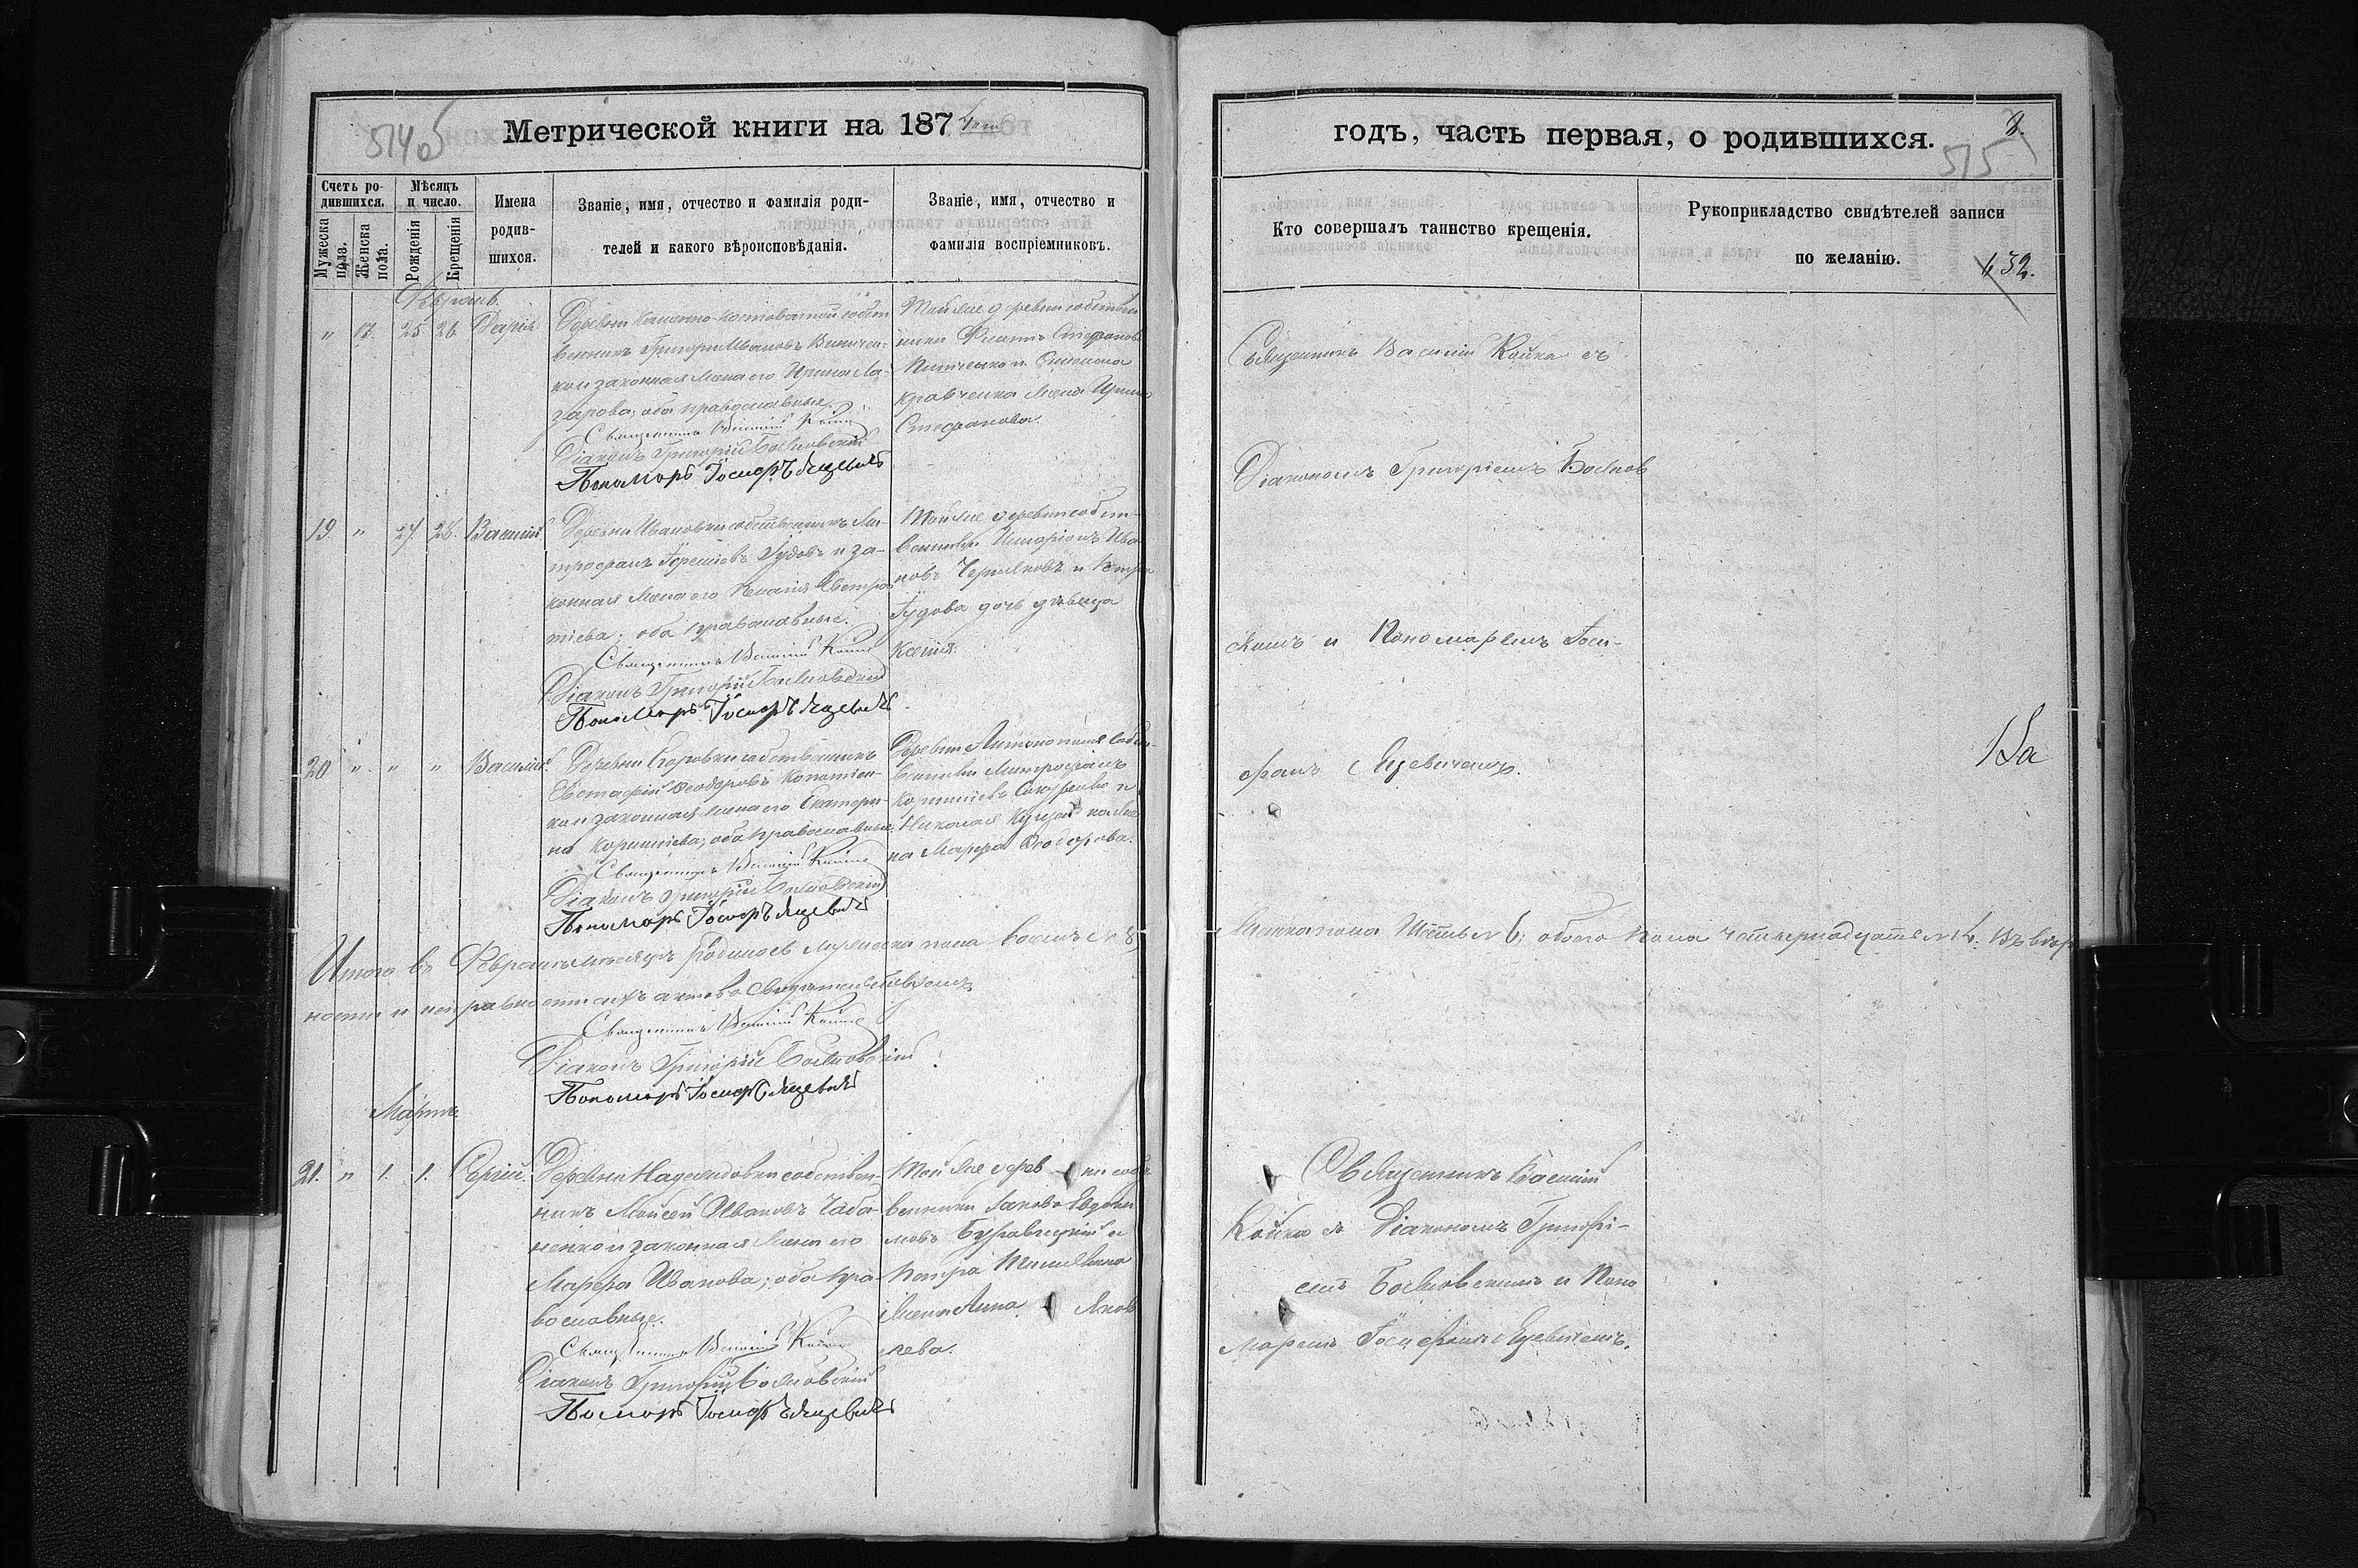 514об
Метрической книги на 1874ый
Счетъ ро-
дившихся.
Мѣсяцъ
и число.
Мужеска
пола.
Женска
пола.
Рожденія
Крещенія
Имена
родив-
шихся.
Званіе, имя, отчество и фамилія роди-
телей и какого вѣроисповѣданія.
Званіе, имя, отчество и
фамилія воспріемниковъ.
" 13. 25 26. Дарія
Деревни собст
венникъ Григорій Ивановъ
ко и законная жена его Ирина Ла-
зарова, оба православные.
Священникъ Василій Койка
Діаконъ Григорій Божковскій
Пономарь Іосифъ Яцевичъ
Той же деревни собствен
ники Филипъ Стефановъ
и Онисима
Кравченка жена Ирина
Стефанова.
19. " 27. 28. Василій
Деревни Ивановки собственникъ Ми-
трофанъ Гудовъ и за-
конная жена его Пелагія Евстра
тіева; оба православные.
Священникъ Василій Койка
Діаконъ Григорій Божковскій
Пономарь Іосифъ Яцевичъ
Той же деревни собст-
венники Ива
новъ Черняковъ и Петра
Гудова дочь дѣвица
Ксенія.
20 " " " Василій.
Деревни Егоровки собственникъ
Евстафій Феодоровъ
ко и законная жена его Екатери-
на Корниліева; оба православные.
Священникъ Василій Койка
Діаконъ Григорій Божковскій
Пономарь Іосифъ Яцевичъ
Деревни собст-
венники Митрофанъ
Корниліевъ и
Николая же
на Марфа Феодорова.
Итого въ Февралѣ мѣсяцѣ родилось мужеска пола восемь №8,
ности и исправности сихъ актовъ свидѣтельствуемъ
Священникъ Василій Койка
Діаконъ Григорій Божковскій
Пономарь Іосифъ Яцевичъ
Мартъ
21. " 1. 1. Сергій.
Деревни Надеждовки собствен-
никъ Моисей Ивановъ Чаба-
ненко и законная жена его
Марфа Иванова; оба пра-
вославные.
Священникъ Василій Койка
Діаконъ Григорій Божковскій
Пономарь Іосифъ Яцевичъ
Той же дерев ни собст
венники Іаковъ Евдоки
мовъ и
Петра
жена Анна Яков
лева.
годъ, часть первая, о родившихся.
8.
515
Кто совершалъ таинство крещенія.
Рукоприкладство свидѣтелей записи
по желанію.
632.
Священникъ Василій Койка съ
Діакономъ Григоріемъ Божков
скимъ и Пономаремъ Іоси-
фомъ Яцевичемъ.
женска пола шесть №6; обоего пола четырнадцать №14. Въ вѣр
Священникъ Василій
Койка съ Діакономъ Григорі-
емъ Божковскимъ и Поно
маремъ Іосифомъ Яцевичемъ.